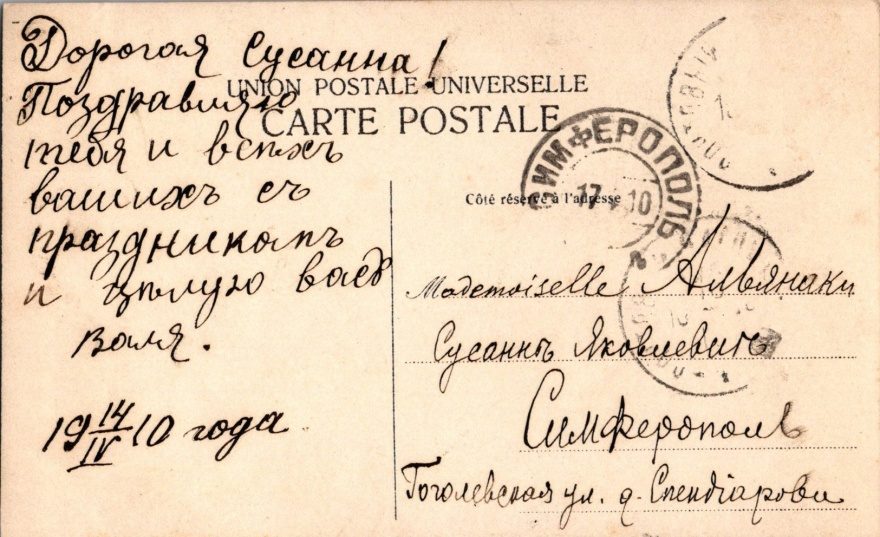 Дорогая Сусанна!
Поздравляю
тебя и всѣхъ
вашихъ съ
праздникомъ
и цѣлую васъ
Валя.
19 14/IV 10 года
UNION POSTALE UNIVERSELLE
CARTE POSTALE
Côté réservé à l'adresse
СИМФЕРОПОЛЬ
17 4 10
Mademoiselle Альянаки
Сусаннѣ Яковлевнѣ
Симферополь
Гоголевская ул. д. Спендіарова